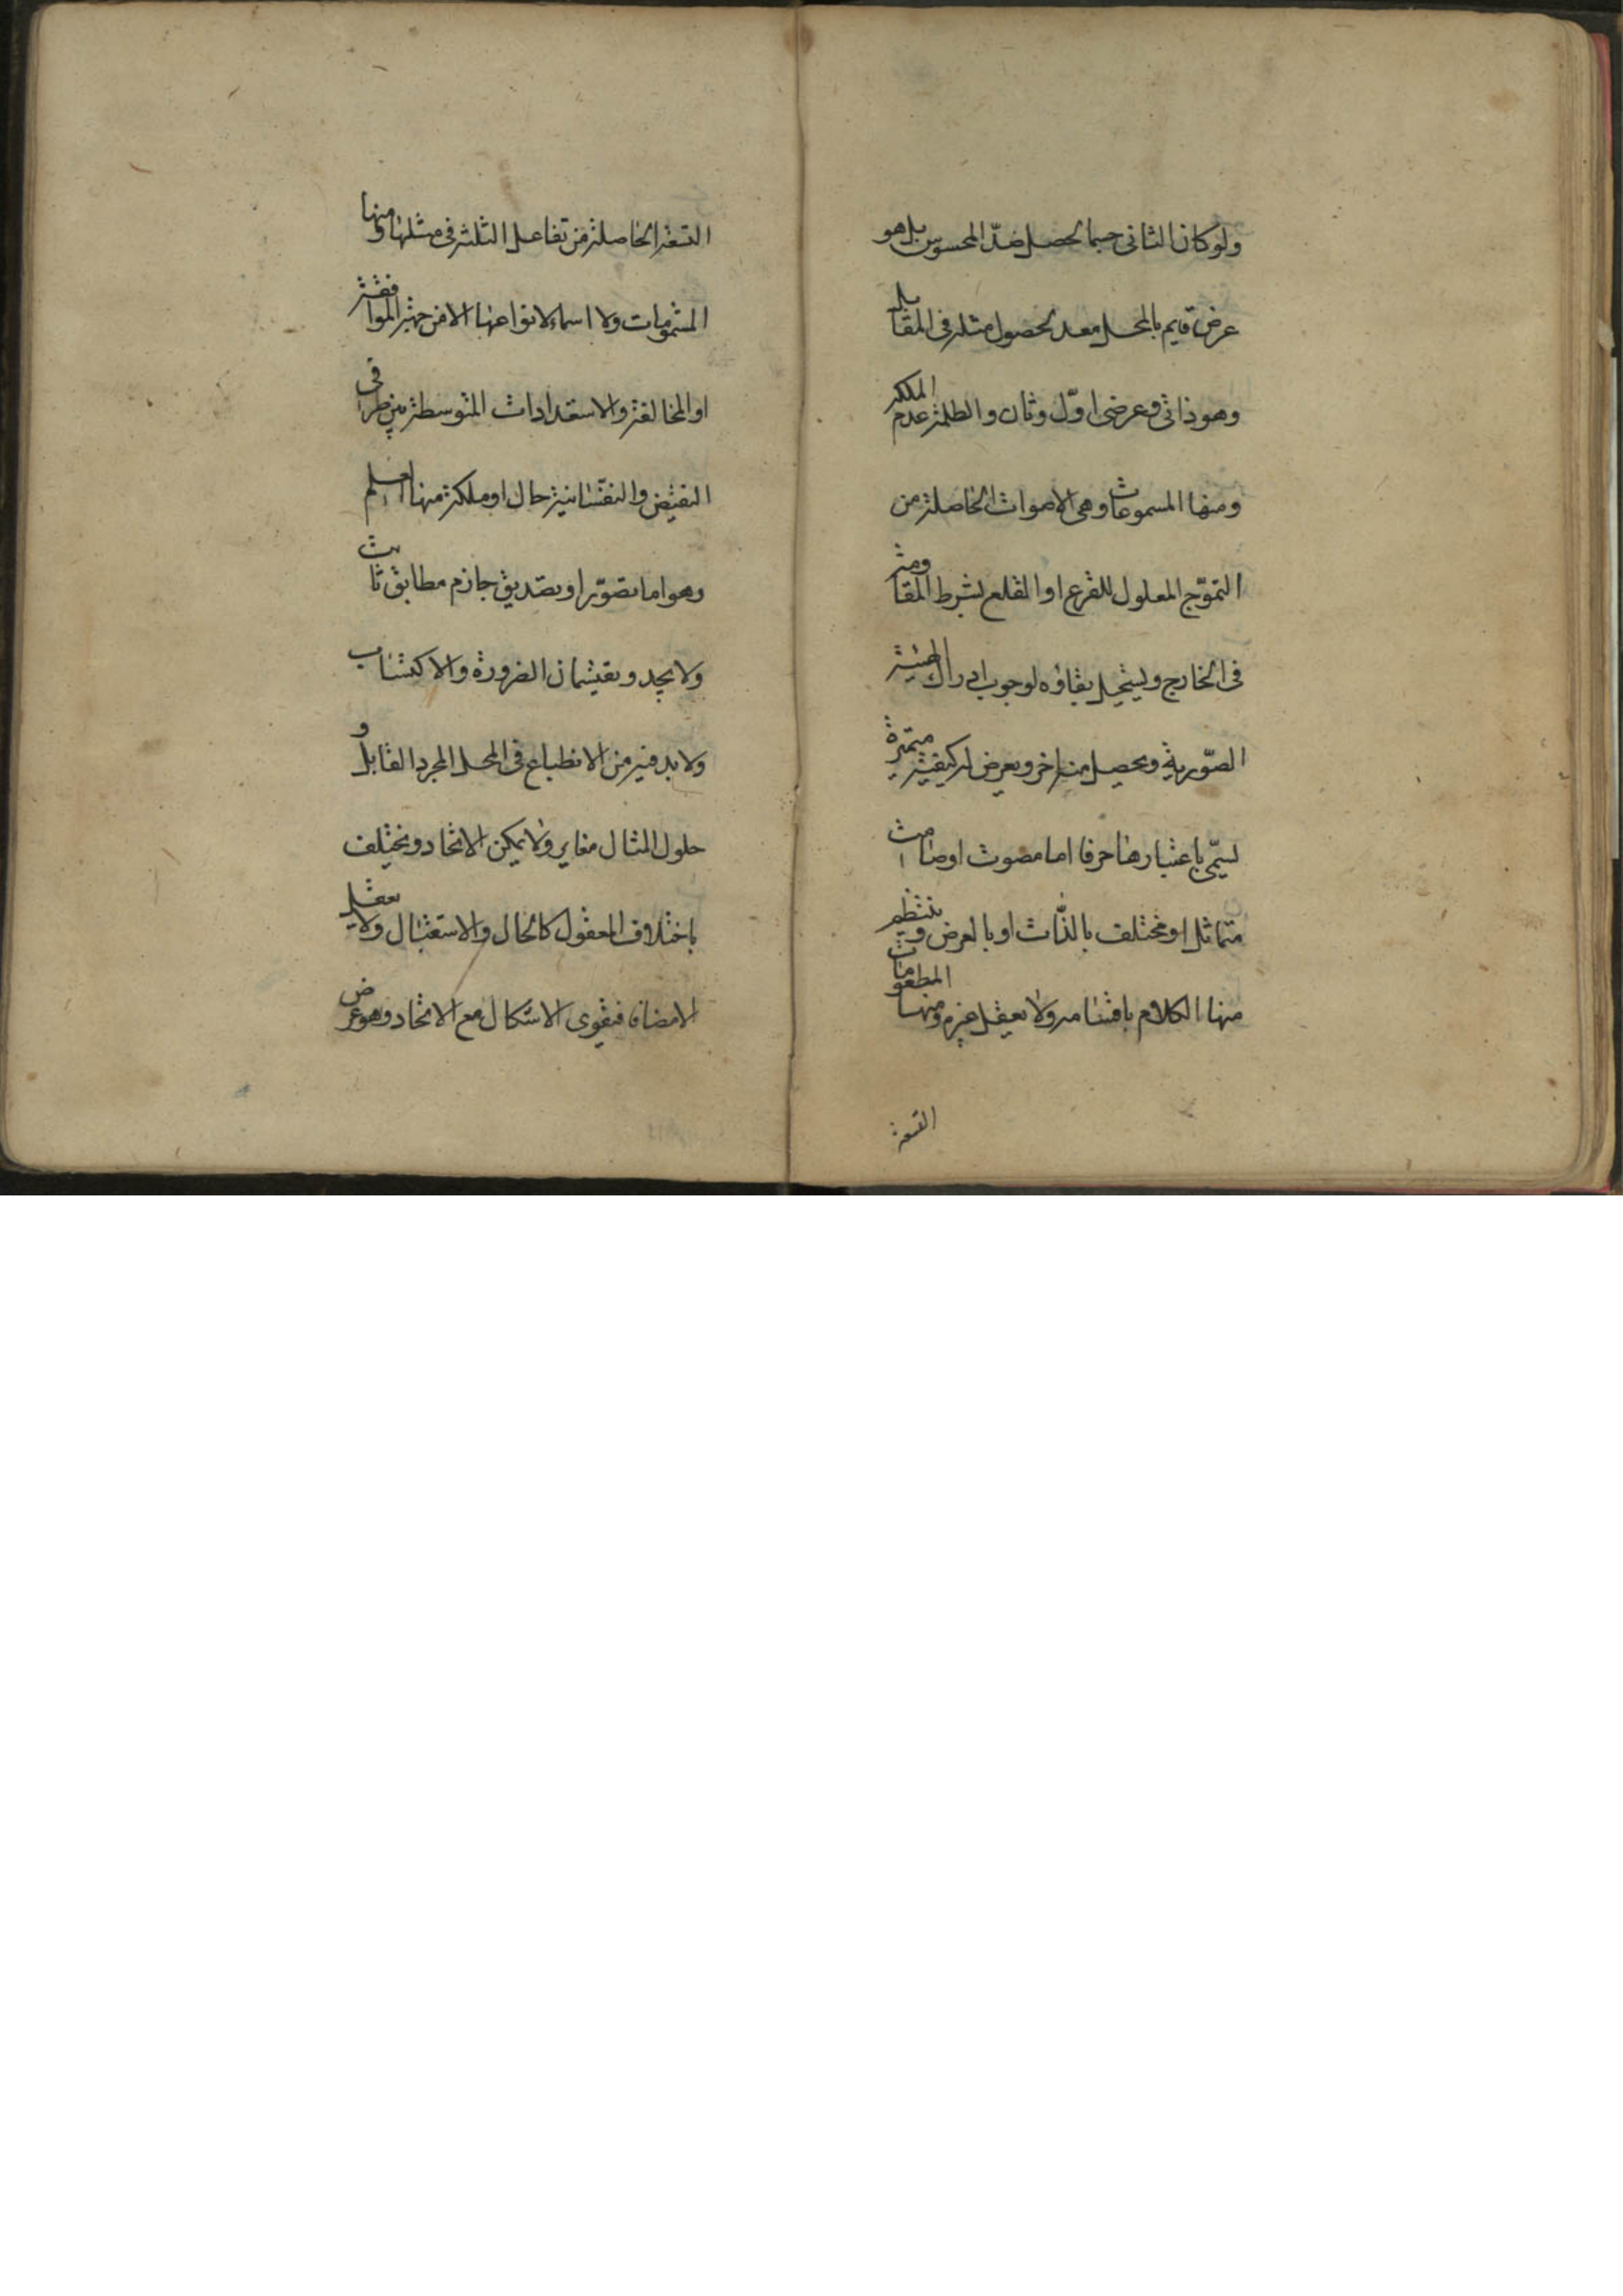 ولو كان الثاني جسما لحصل ضدّ المحسوس بل هو
عرض قايم بالمحل معد لحصول مثله في المقابل
وهو ذاتي وعرضي اوّل وثان والظلمة عدم الملكة
ومنها المسموعات وهي الاصوات الحاصلة من
التموّج المعلول للقرع او القلع بشرط المقاومة
في الخارج ويستحيل بقاؤه لوجوب ادراك الهيئة
الصّورية ويحصل منه اخر ويعرض له كيفية متميزة
يسمّى باعتبارها حرفا اما مصوت او صامت
متماثل او مختلف بالذّات او بالعرض وينتظم
منها الكلام باقسامه ولا يعقل غيره ومنها المطعومات
التسعة
التسعة الحاصلة من تفاعل الثلثة في مثلها ومنها
المشمومات ولا اسماء لانواعها الا من جهة الموافقة
او المخالفة والاستعدادات المتوسطة بين طرفي
النقيض والنفسانية حال او ملكة منها العلم
وهو اما تصوّر او تصديق جازم مطابق ثابت
ولا يحد ويقتسمان الضرورة والاكتساب
ولا بد فيه من الانطباع في المحل المجرد القابل و
حلول المثال مغاير ولا يمكن الاتحاد ويختلف
باختلاف المعقول كالحال والاستقبال ولا يعقل
الا مضافا فيقوى الاشكال مع الاتحاد وهو عرض